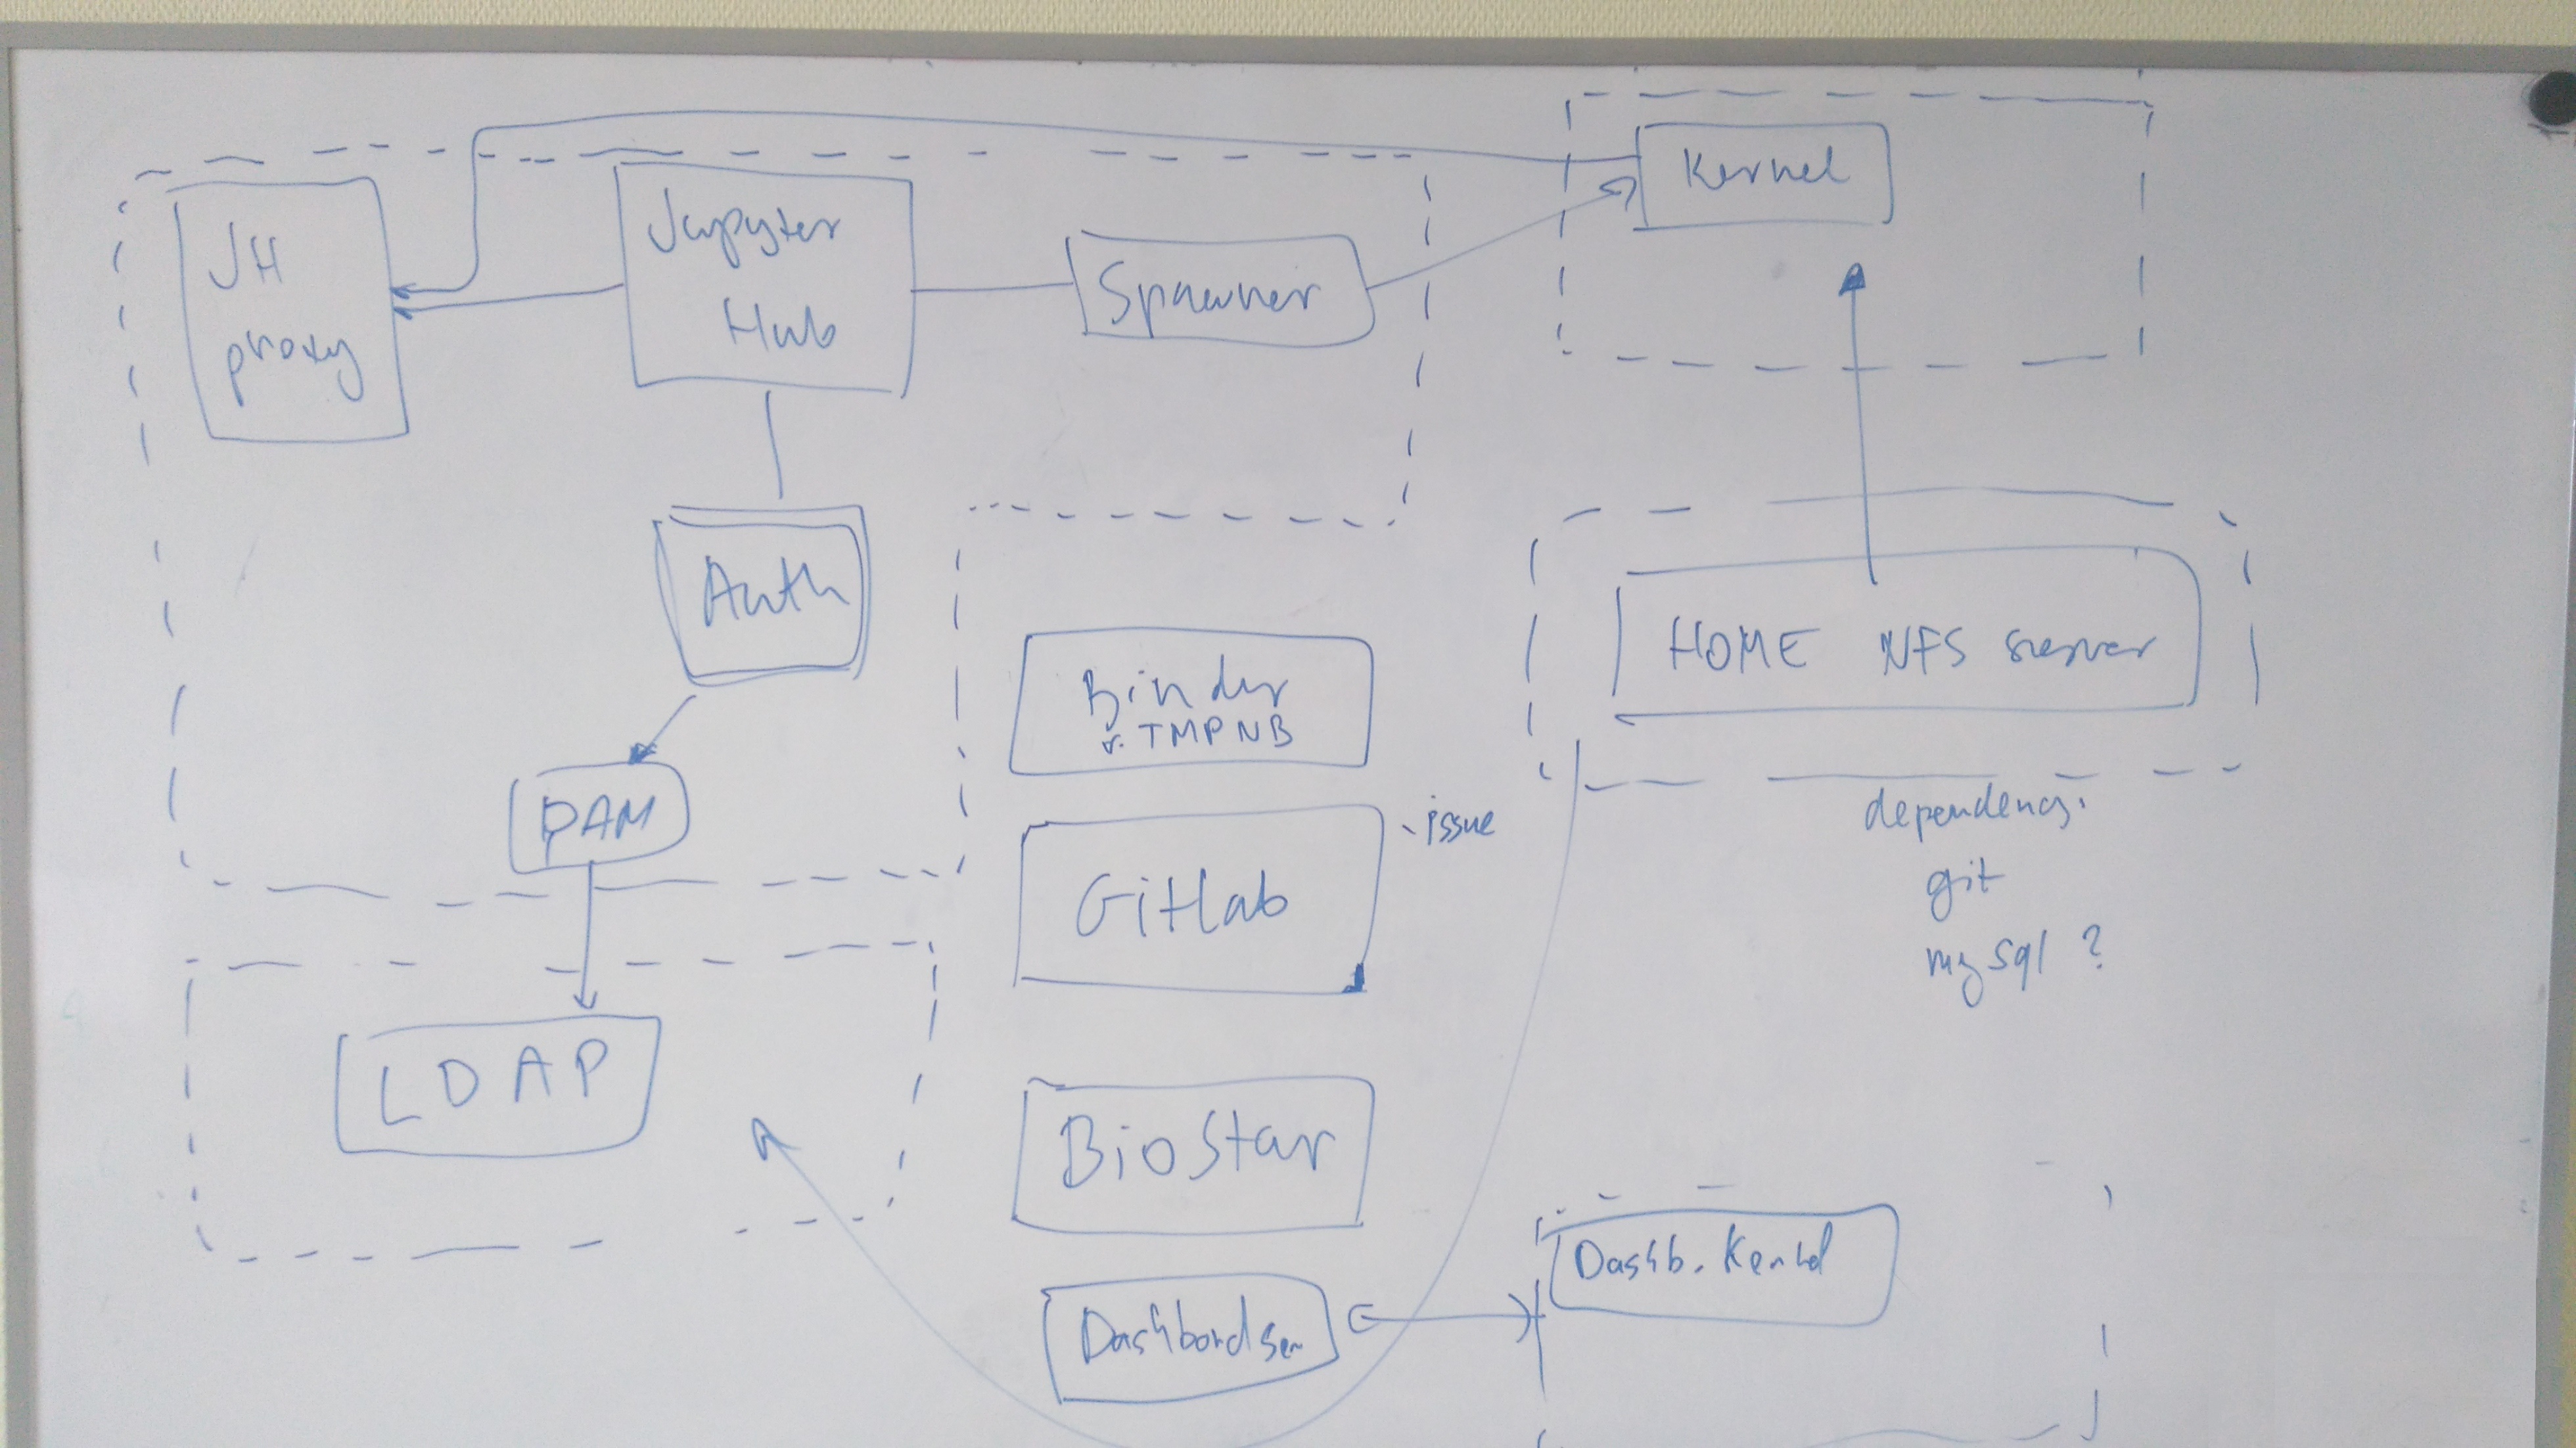 JH
proxy
Jupyter
Hub
Spawner
Kernel
Auth
PAM
LDAP
Binder
TMPNB
GitLab
- issue
BioStar
Dashbord ser
Dashb. Kernel
HOME NFS server
dependency:
git
mysql ?